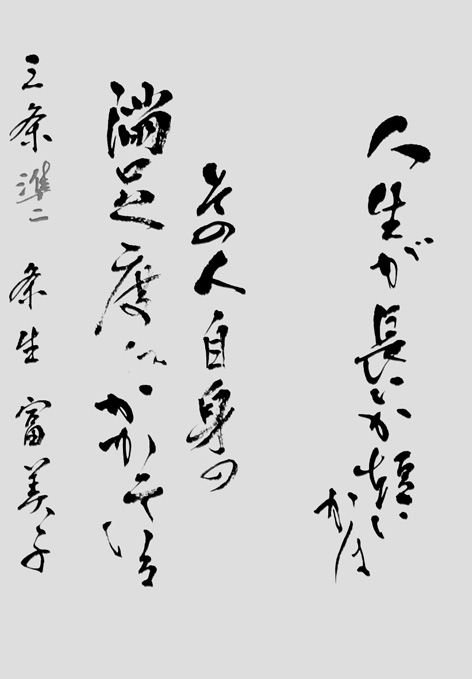 人生が長いか短いかは
その人自身の
満足度にかかっている
三条準二 条生 富美子